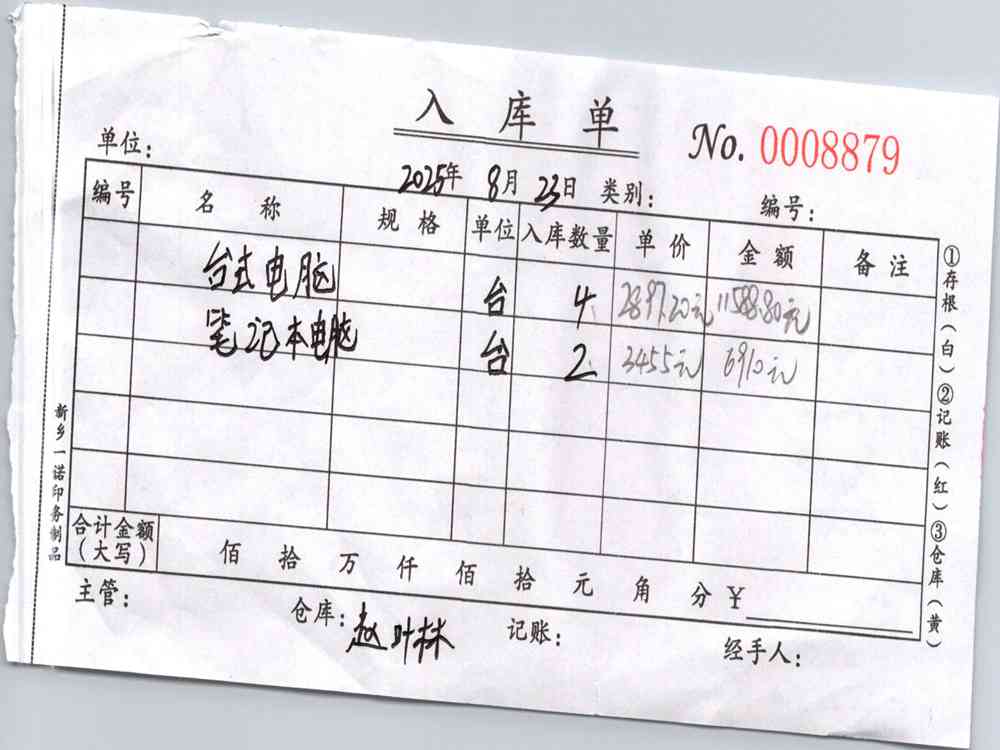 入库单
No. 0008879
单位:
2025年 8月 23日 类别: 编号:
编号 名称 规格 单位 入库数量 单价 金额 备注
台式电脑 台 4 2897.20元 11588.80元
笔记本电脑 台 2 3455元 6910元
合计金额(大写) 佰 拾 万 仟 佰 拾 元 角 分 ¥
主管: 仓库:赵叶林 记账: 经手人:
①存根(白)②记账(红)③仓库(黄)
新乡一诺印务制品